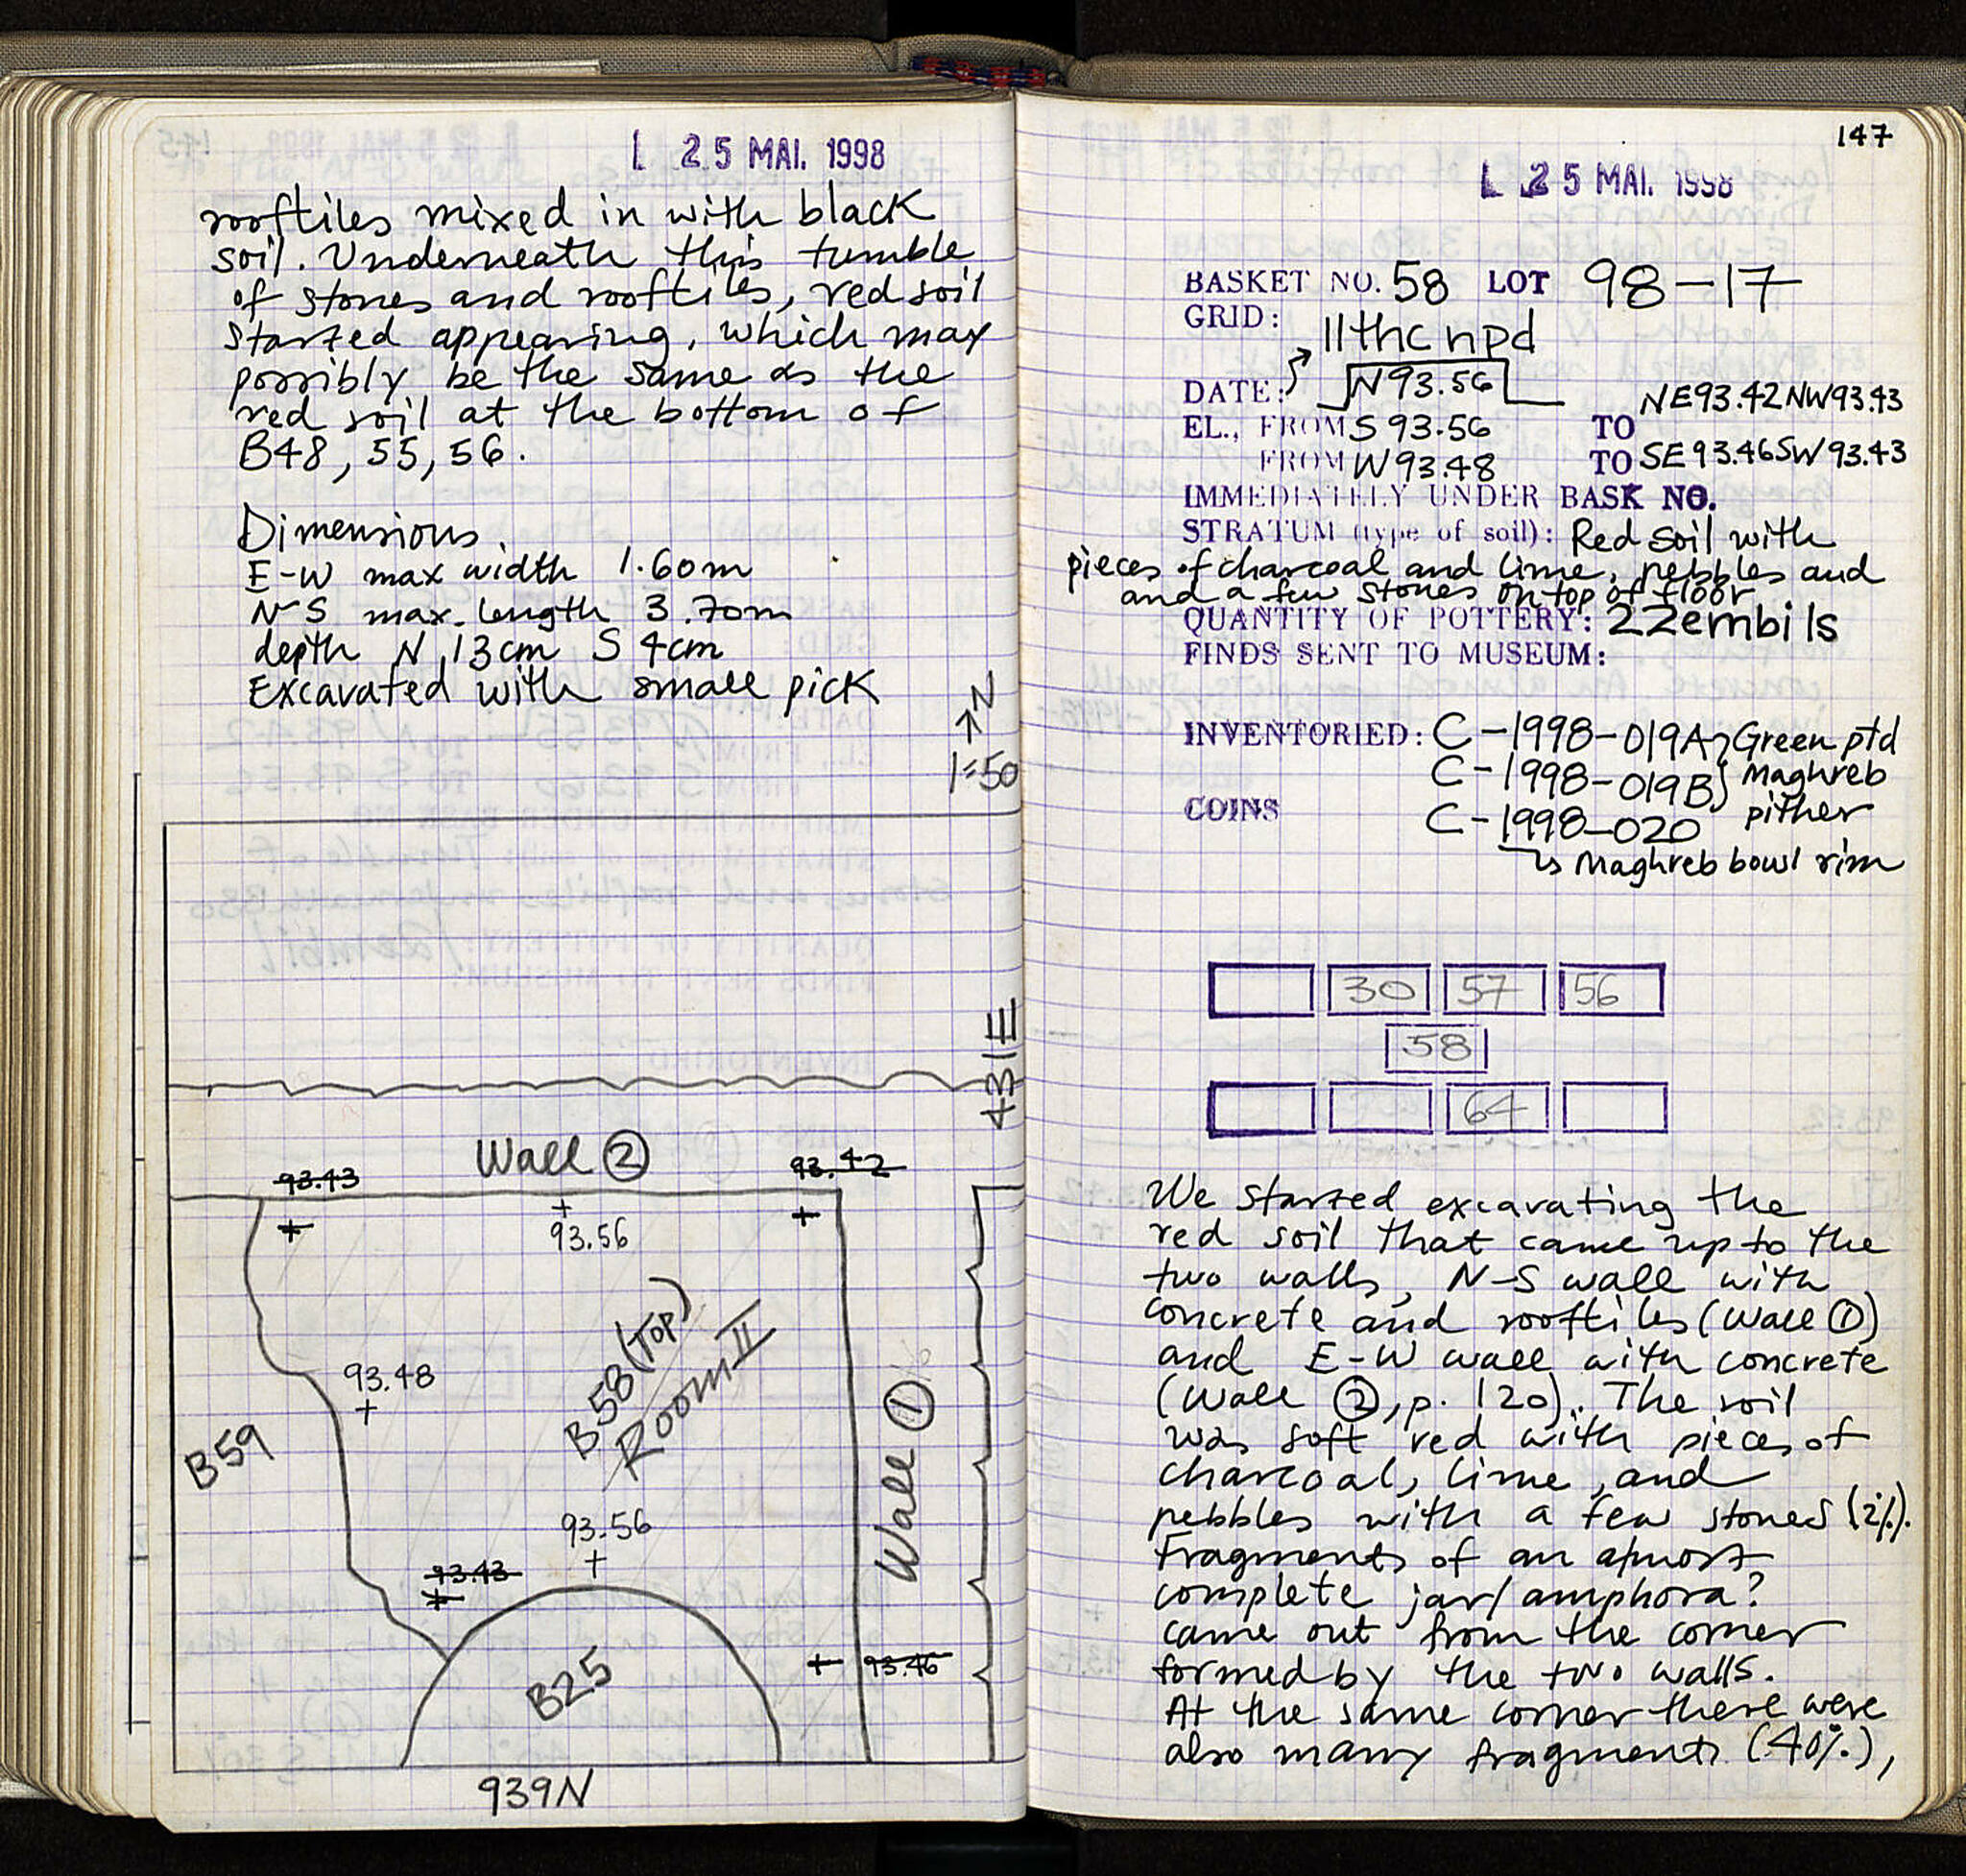 25 MAI. 1998
rooftiles mixed in with black
soil. Underneath this tumble
of stones and rooftiles, red soil
started appearing, which may
possibly be the same as the
red soil at the bottom of
B48, 55, 56.
Dimensions
E-W max width 1.60m
N-S max. length 3.70m
depth N 13cm S 4cm
Excavated with small pick
N
1:50
431E
Wall ②
93.43
93.42
93.56
B58 (TOP)
Room II
93.48
B59
Wall ①
93.56
93.43
93.46
B25
939N
147
25 MAI. 1998
BASKET NO. 58 LOT 98-17
GRID:
11thc npd
DATE: N93.56
NE93.42 NW93.43
EL., FROM S 93.56 TO
FROM W93.48 TO SE93.46 SW93.43
IMMEDIATELY UNDER BASK NO.
STRATUM (type of soil): Red soil with
pieces of charcoal and lime, pebbles and
and a few stones on top of floor
QUANTITY OF POTTERY: 2 Zembils
FINDS SENT TO MUSEUM:
INVENTORIED: C-1998-019A Green ptd
C-1998-019B Maghreb
COINS C-1998-020 pither
Maghreb bowl rim
30 57 56
58
64
We started excavating the
red soil that came up to the
two walls, N-S wall with
concrete and rooftiles (Wall ①)
and E-W wall with concrete
(Wall ②, p. 120). The soil
was soft red with pieces of
charcoal, lime, and
pebbles with a few stones (2%).
Fragments of an almost
complete jar/amphora?
came out from the corner
formed by the two walls.
At the same corner there were
also many fragments (40%),